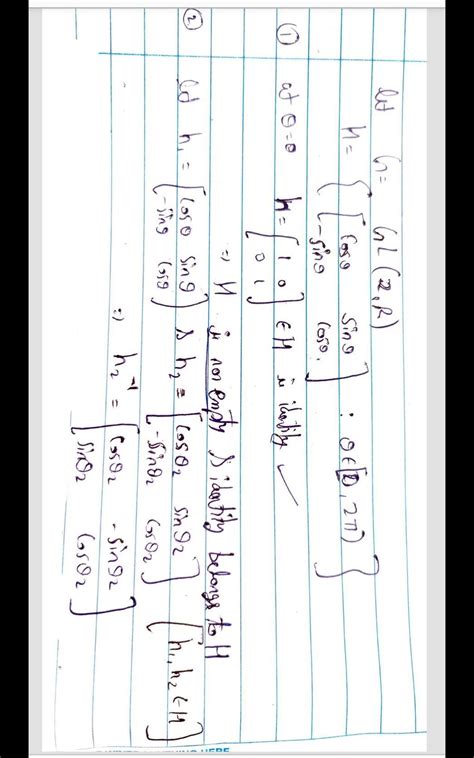 let G = GL(2,R)
H = { [cosθ sinθ -sinθ cosθ] : θ∈[0, 2π) }
① at θ=0 H = [1 0 0 1] ∈ H is identity ✓
⇒ H is non empty & identity belongs to H
② let h₁ = [cosθ sinθ -sinθ cosθ] & h₂ = [cosθ₂ sinθ₂ -sinθ₂ cosθ₂] [h₁, h₂ ∈ H]
⇒ h₂⁻¹ = [cosθ₂ -sinθ₂ sinθ₂ cosθ₂]